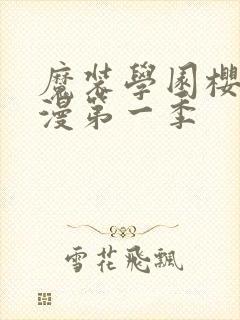 魔裝學園櫻
漫第一季
雪花飛飄